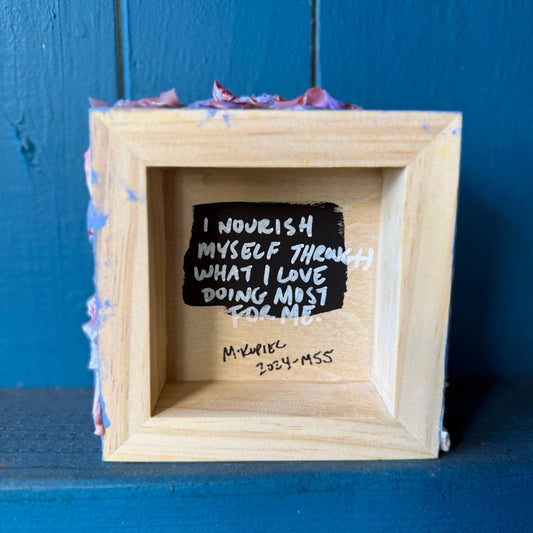 I NOURISH
MYSELF THROUGH
WHAT I LOVE
DOING MOST
FOR ME.
M. KUPIEC
2024-M55